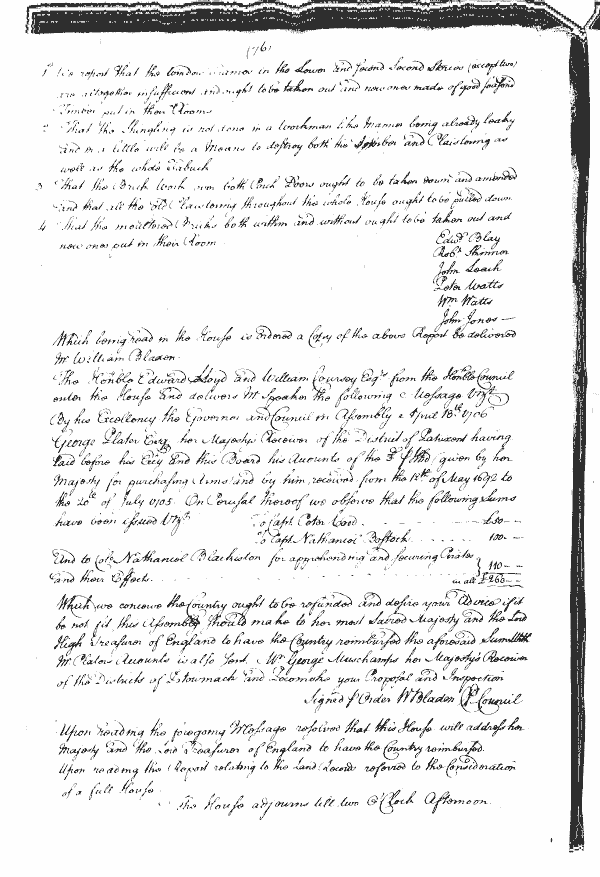 (76)
1st We report that the window frames in the Lower and Second Stories (except two)
are altogether insufficient and ought to be taken out and new ones made of good seasoned
Timber put in their Rooms
2 That the Shingling is not done in a Workman like Manner being already leaky
and in a little will be a Means to destroy both the Timber and Plaistering as
well as the whole Fabrick
3 That the Brick Work over both Porch Doors ought to be taken down and amended
and that all the old Plaistering throughout the whole House ought to be pulled down
4 That the mouldered Bricks both within and without ought to be taken out and
new ones put in their Room
Edwd Blay
Robt Skinner
John Leach
Peter Watts
Wm Watts
John Jones
Which being read in the House is ordered a Copy of the above Report be delivered
Mr William Bladen
The Honble Edward Lloyd and William Coursey Esqrs from the Honble Council
enter the House and delivers Mr Speaker the following Message Vizt
By his Excellency the Governor and Council in Assembly April 18th 1706
George Plater Esqr her Majestys Receiver of the District of Patuxent having
laid before his Excy and this Board his Accounts of the 3d given by her
Majesty for purchasing Arms and by him received from the 12th of May 1692 to
the 20th of July 1705. On Perusal thereof we observe that the following Sums
have been issued Vizt To Capt Peter Coode £50
To Capt Nathaniel Bostock 100
And to Colo Nathaniel Blackiston for apprehending and securing Pirates
and their Effects 110
in all £260
Which we conceive the Country ought to be refunded and desire your Advice if it
be not fit this Assembly should make to her most Sacred Majesty and the Lord
High Treasurer of England to have the Country reimbursed the aforesaid Sum With
Mr Platers Accounts is also sent Mr George Muschamps her Majestys Receiver
of the Districts of Potowmack and Pocomoke your Proposal and Inspection
Signed p Order W Bladen Cl Council
Upon reading the foregoing Message resolved that this House will address her
Majesty and the Lord Treasurer of England to have the Country reimbursed.
Upon reading the Report relating to the Land Records referred to the Consideration
of a full House
The House adjourns till two O Clock Afternoon